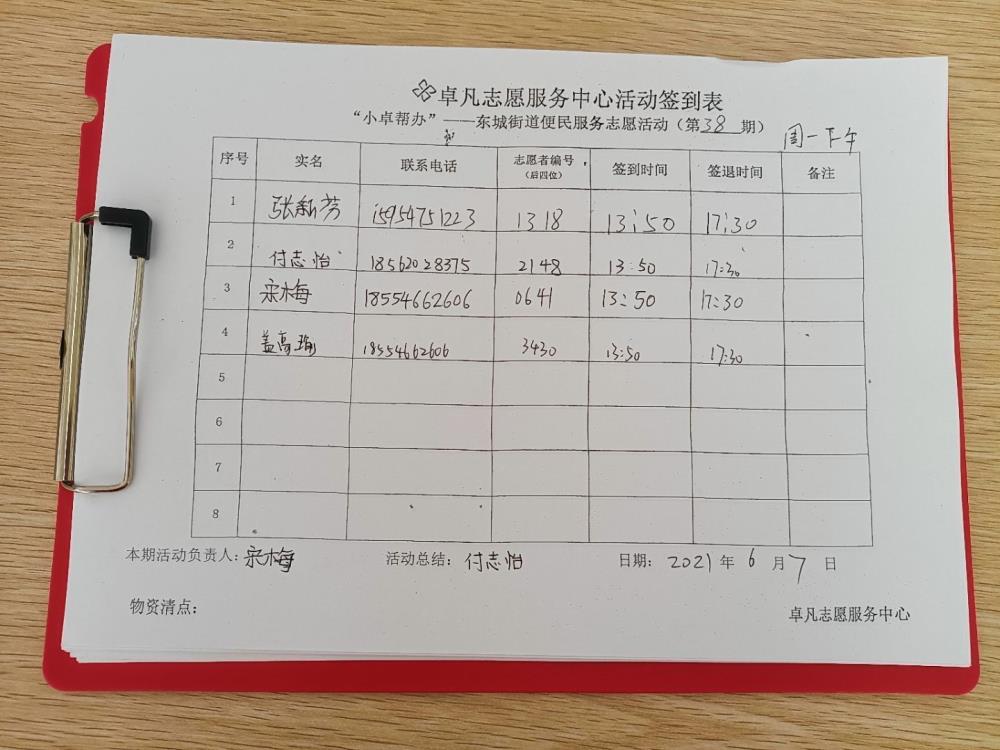 卓凡志愿服务中心活动签到表
“小卓帮办”——东城街道便民服务志愿活动（第38期）
周一下午
序号 实名 联系电话 志愿者编号（后四位） 签到时间 签退时间 备注
1 张新芳 15954751223 1318 13:50 17:30
2 付志怡 18562028375 2148 13:50 17:30
3 宋梅 18554662606 0641 13:50 17:30
4 盖高瑜 18554662606 3430 13:50 17:30
5
6
7
8
本期活动负责人：宋梅 活动总结：付志怡 日期：2021年6月7日
物资清点： 卓凡志愿服务中心